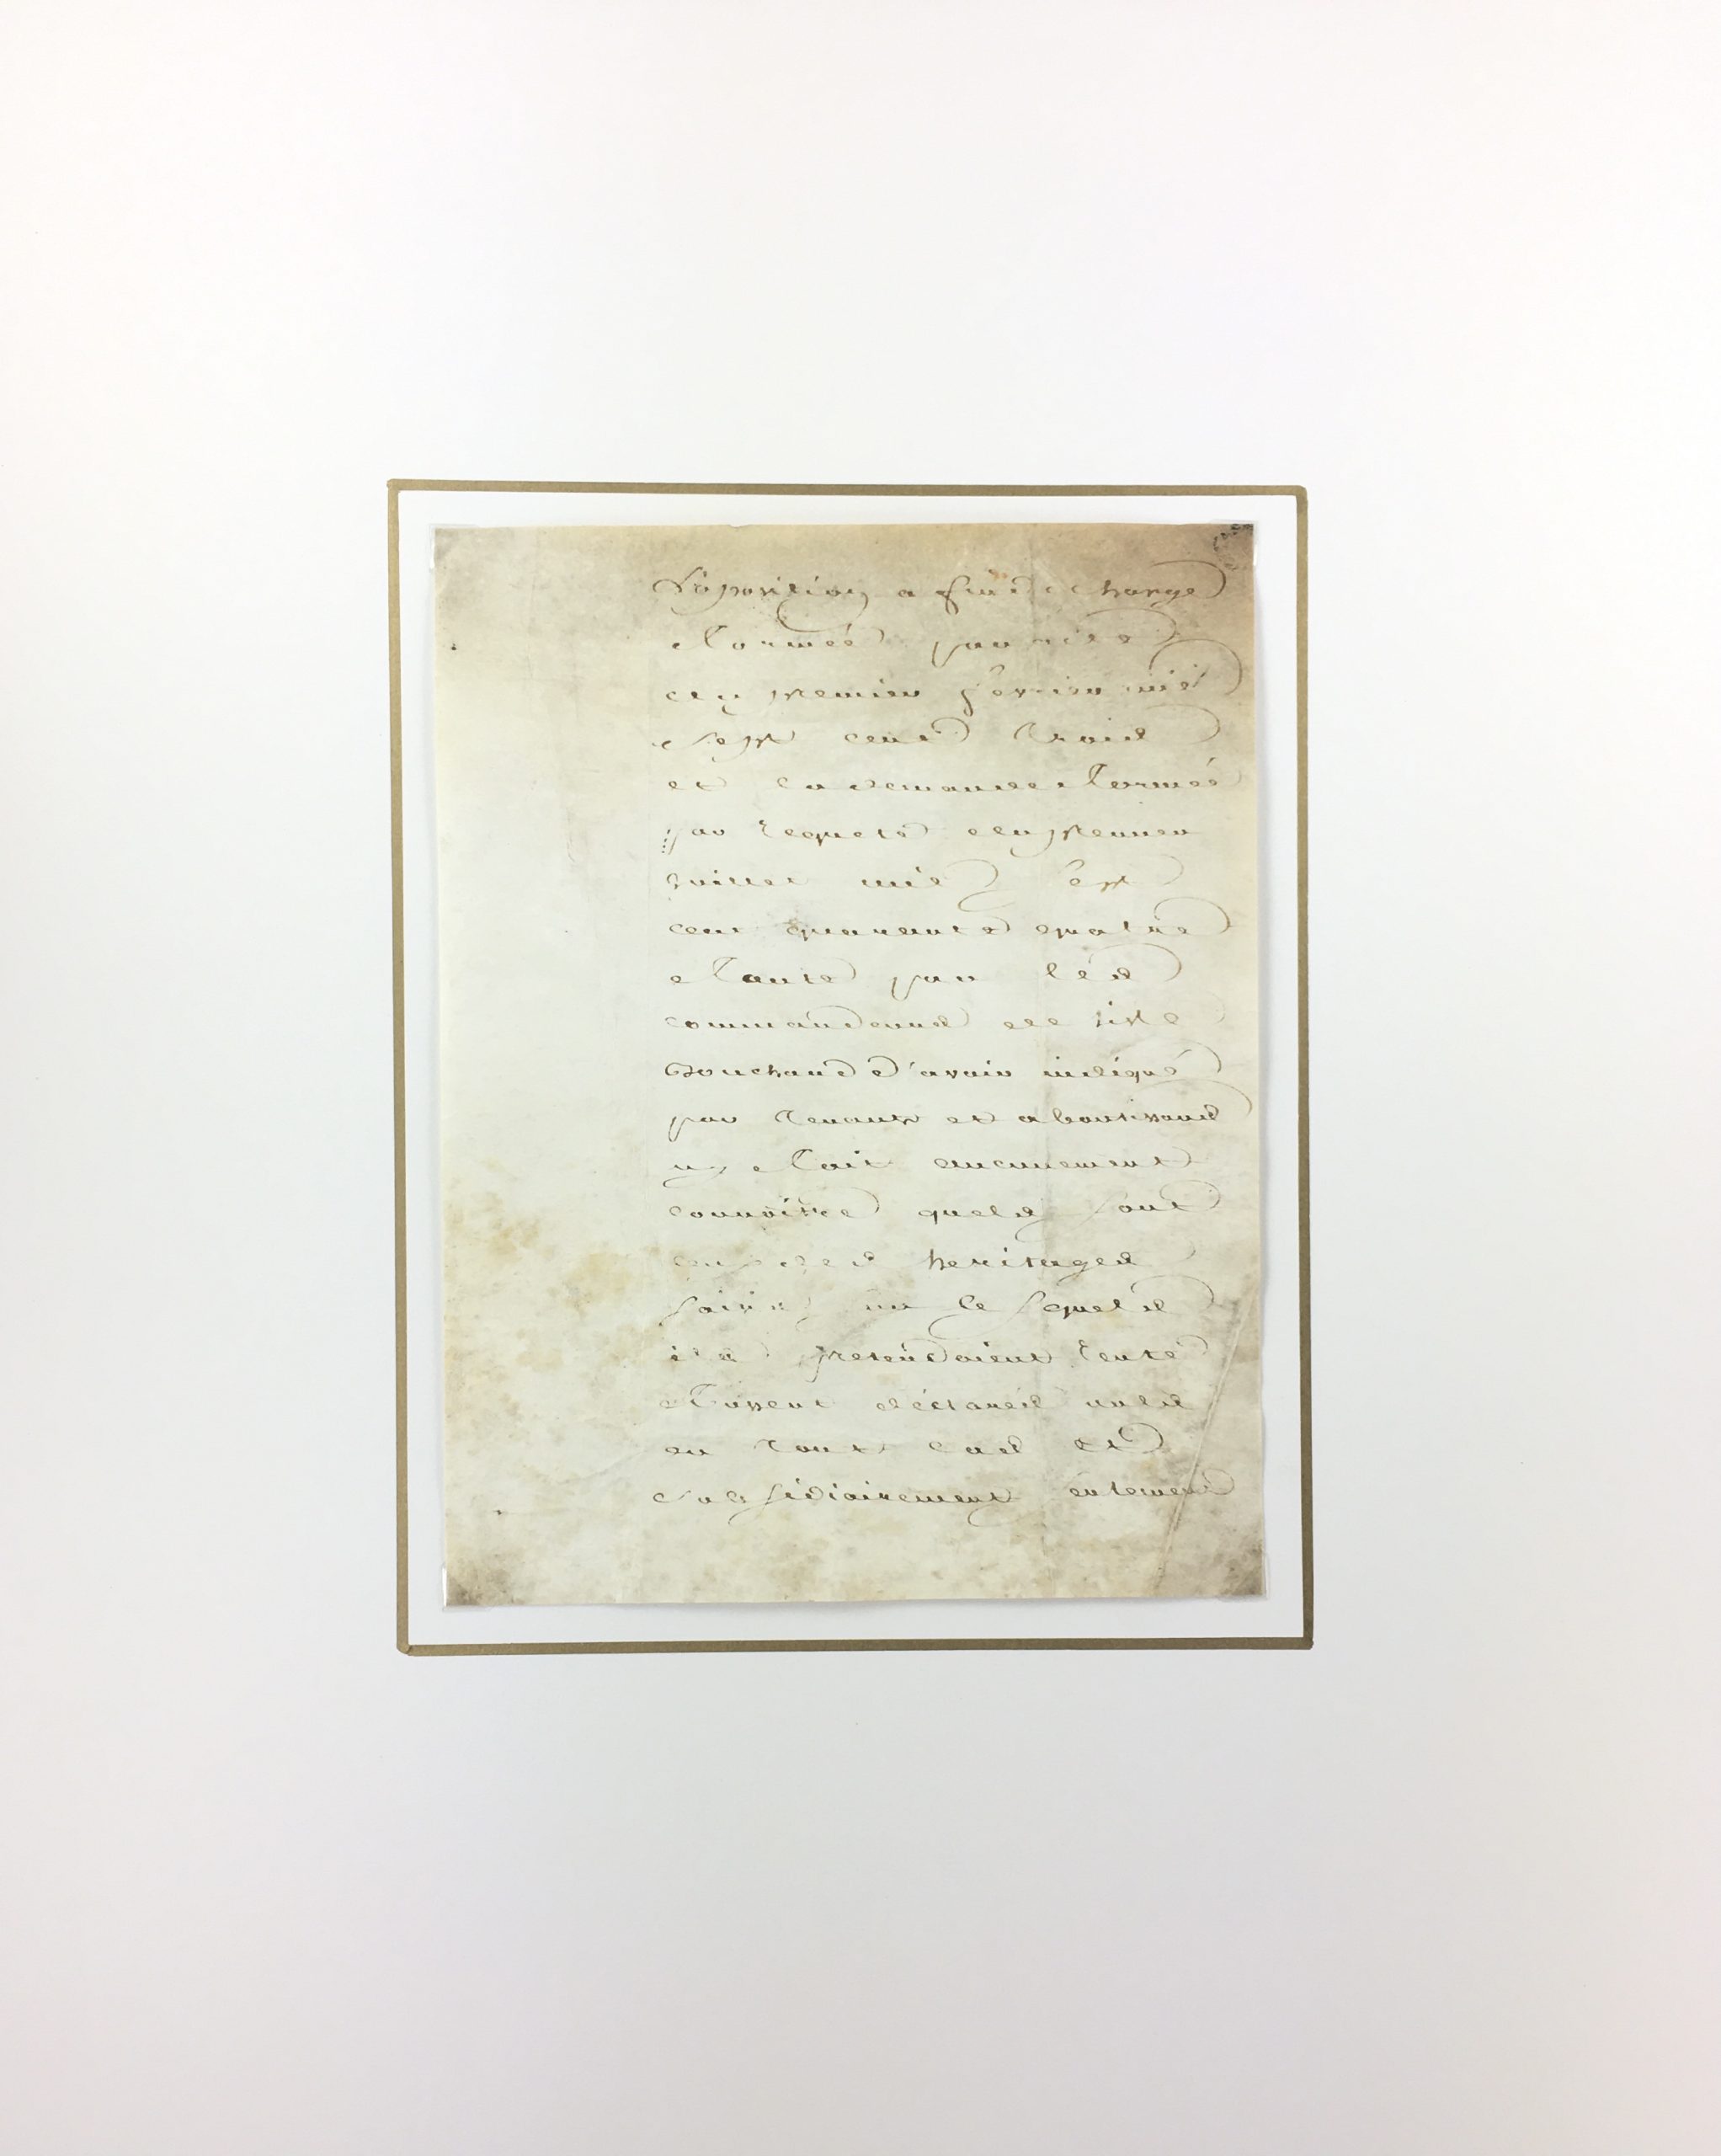 L'oposition a fin de charge
formée par eux
du premier février mil
sept cent trois
et la demande formée
par requeté du premier
juillet mil sept
cent quarante quatre
faute par les
commandeurs de
Bouchaud d'avoir indiqué
par tenants et aboutissans
ny fait aucunement
connoître quels sont
ceux des heritages
saisis sur lesquels
ils pretendoient rente
fussent déclarés nuls
en tout cas et
subsidiairement